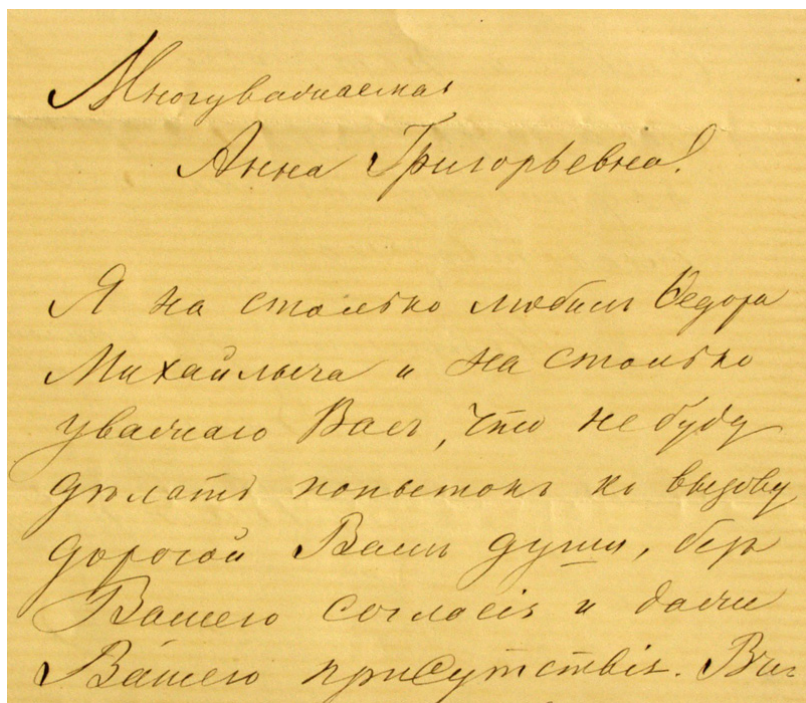 Многуважаемая
Анна Григорьевна!
Я на столько любилъ Ѳедора
Михайлыча и на столько
уважаю Васъ, что не буду
дѣлать попытокъ къ вызову
дорогой Вамъ души, безъ
Вашего согласія и даже
Вашего присутствія. Вы-